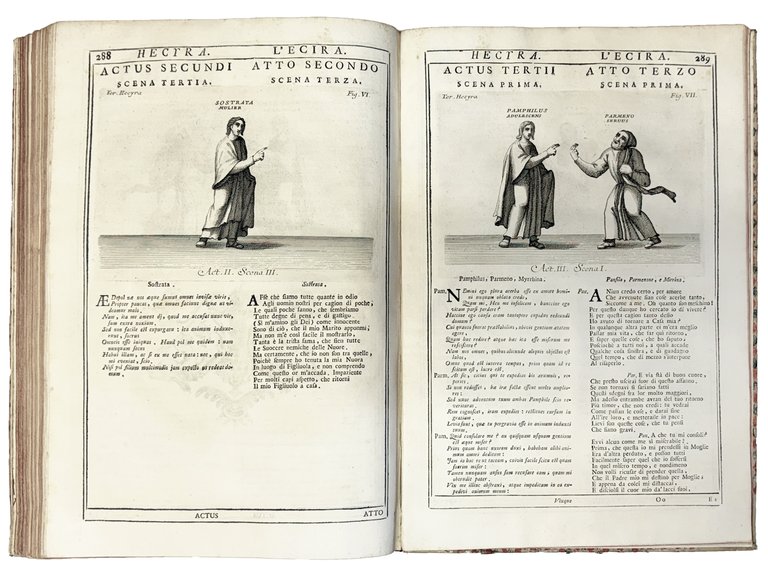 288 HECYRA. L'ECIRA.
ACTUS SECUNDI
SCENA TERTIA.
ATTO SECONDO
SCENA TERZA.
Ter. Hecyra
Fig. VI.
SOSTRATA
MULIER
Act. II. Scena III.
Sostrata.
ÆDepol næ nos æque sumus omnes invisæ viris,
Propter paucas, quæ omnes faciunt dignæ ut vi-
deamur malo.
Nam, ita me ament dj, quod me accusat nunc vir,
sum extra noxiam.
Sed non facile est expurgare: ita animum induxe-
runt, socrus
Omneis esse iniquas. Haud pol me quidem: nam
nunquam secus
Habui illam, ac si ex me esset nata: nec, qui hoc
mi eveniat, scio.
Nisi pol filium multimodis jam expeto, ut redeat do-
mum.
Sostrata.
AFfè che siamo tutte quante in odio
Agli uomin nostri per cagion di poche,
Le quali poche fanno, che sembriamo
Tutte degne di pena, e di gastigo.
(Sì m'amino gli Dei) come innocente
Sono di ciò, che il mio Marito appommi,
Ma non m'è così facile il mostrarlo,
Tanta è la trista fama, che sien tutte
Le Suocere nemiche delle Nuore.
Ma certamente, che io non son tra quelle,
Poichè sempre ho tenuta la mia Nuora
In luogo di Figliuola, e non comprendo
Come questo or m'accada. Impaziente
Per molti capi aspetto, che ritorni
Il mio Figliuolo a casa.
ACTUS
ATTO
HECYRA. L'ECIRA. 289
ACTUS TERTII
SCENA PRIMA.
ATTO TERZO
SCENA PRIMA.
Ter. Hecyra
Fig. VII.
PAMPHILUS
ADOLESCENS
PARMENO
SERUUS
Act. III. Scena I.
Pamphilus, Parmeno, Myrrhina.
Pam. NEmini ego plura acerba esse ex amore homi-
ni unquam oblata credo,
Quam mi. Heu me infelicem, hanccine ego
vitam parsi perdere?
Hac cine causa ego eram tantopere cupidus redeundi
domum?
Cui quanto fuerat præstabilius, ubivis gentium agere
ætatem,
Quam huc redire? atque hæc ita esse miserum me
resciscere?
Nam nos omnes, quibus alicunde aliquis objectus est
labos,
Omne quod est interea tempus, prius quam id re-
scitum est, lucro est.
Parm. At sic, citius qui te expedias his ærumnis, re-
perias.
Si non rediisses, hæ iræ factæ essent multo amplio-
res:
Sed nunc adventum tuum ambas Pamphile scio re-
verituras.
Rem cognosces, iram expedies: restitues rursum in
gratiam.
Levia sunt, quæ tu pergravia esse in animum induxti
tuum.
Pam. Quid consolare me? an quisquam usquam gentium
est æque miser?
Prius quam hanc uxorem duxi, habebam alibi ani-
mum amori deditum:
Jam in hac re ut taceam, cuivis facile est scitu quam
fuerim miser:
Tamen nunquam ausus sum recusare eam, quam mi
obtrudit pater.
Vix me illinc abstraxi, atque impeditum in ea ex-
pedivi animum meum:
Vixque
Panfilo, Parmenone, e Mirrina.
Pan. A Niun credo certo, per amore
Che avvenute sian cose acerbe tanto,
Siccome a me. Oh quanto son meschino!
E per questa cagion tanto desio
Ho avuto di tornare a Casa mia?
In qualunque altra parte ei m'era meglio
Passar mia vita, che far quì ritorno,
E saper quelle cose, che ho saputo;
Poichè a tutti noi a quali accade
Qualche cosa sinistra, e di guadagno
Quel tempo, che di meno s'interpone
Al risaperlo.
Par. E via fia di buon cuore,
Che presto uscirai fuor di questo affanno,
Se non tornavi si farian fatti
Quelli sdegni fra lor molto maggiori,
Ma adesso entrambe avran del tuo ritorno
Più timor, che non credi: tu vedrai
Come passan le cose, e darai fine
All'ire loro, e metterale in pace:
Lievi son queste cose, che tu pensi
Che siano gravi.
Pan. A che tu mi consoli?
Evvi alcun come me sì miserabile?
Prima, che questa io mi prendessi in Moglie
Era d'altra perduto, e posson tutti
Facilmente saper quel che io soffersi
In quel misero tempo, e nondimeno
Non volli ricusar di prender quella,
Che il Padre mio mi destinò per Moglie;
E appena da colei mi distaccai,
E disciolsi il cuor mio da' lacci suoi,
Oo
E i